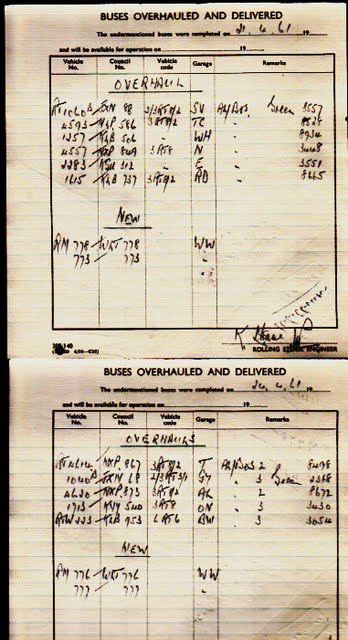 BUSES OVERHAULED AND DELIVERED
The undermentioned buses were completed on 21.4.61 19
and will be available for operation on 19
Vehicle No. Council No. Vehicle code Garage Remarks
OVERHAUL
JXN 88 2/3RT8/2 SV Green 3557
4593 NXP 586 3RT8/2 TC " 8528
1357 KGB 506 WH " 8934
4557 NXP 849 3RT8 N " 3448
2383 KGU 312 " E " 3551
1615 KGB 737 3RT8/2 RD " 8665
NEW
RM 778 WLT 778 WW
773 773 "
ROLLING STOCK ENGINEER
BUSES OVERHAULED AND DELIVERED
The undermentioned buses were completed on 24.4.61 19
and will be available for operation on 19
Vehicle No. Council No. Vehicle code Garage Remarks
OVERHAULS
RT 4614 NXP 867 3RT8/2 T 2 8498
JXN 68 2/3RT3/1 GY " 3 Green 2368
4620 NXP 873 3RT8/2 AL " 2 8672
1713 KYY 540 3RT8 ON " 3 3430
RTW 223 KGB 953 6RT6 BW " 3 3054
NEW
RM 776 WLT 776 WW
777 777 "